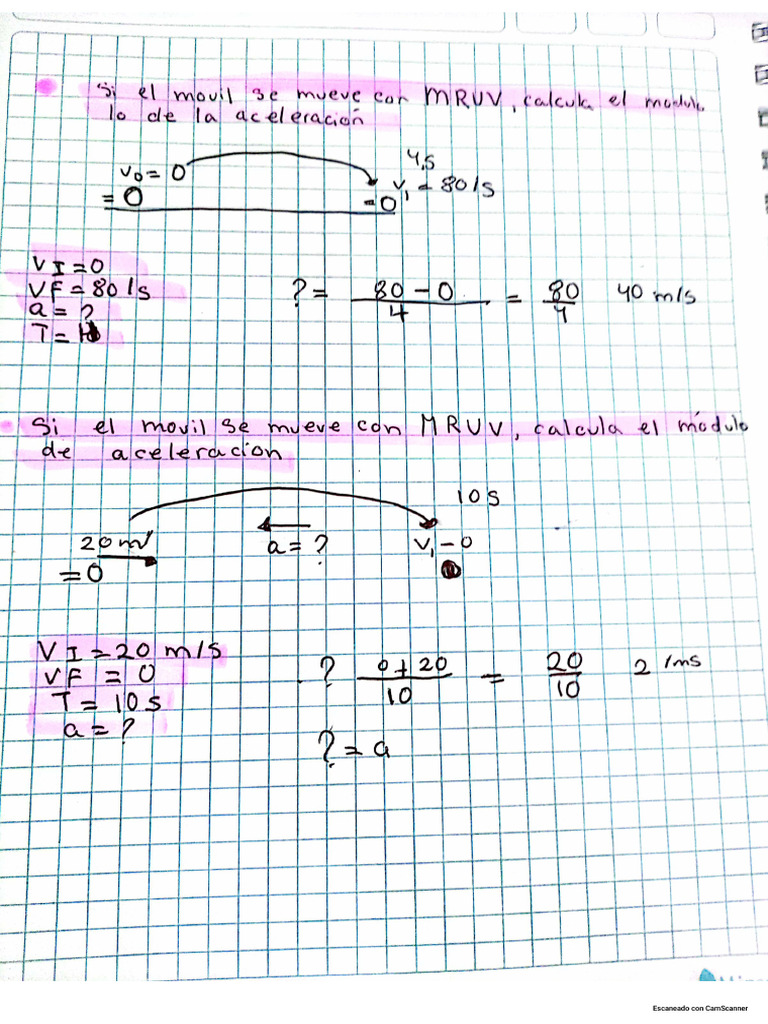 Si el movil se mueve con MRUV, calcula el modu
lo de la aceleración
4,s
V0 = 0
V1 = 80/s
= 0
= 0
VI = 0
VF = 80/s
a = ?
? = 80 - 0 / 4 = 80 / 4 40 m/s
Si el movil se mueve con MRUV, calcula el módulo
de aceleracion
10 s
20 m/
a = ?
V1 - 0
= 0
VI = 20 m/s
VF = 0
T = 10 s
a = ?
? 0 + 20 / 10 = 20 / 10 2 /ms
? = a
Escaneado con CamScanner